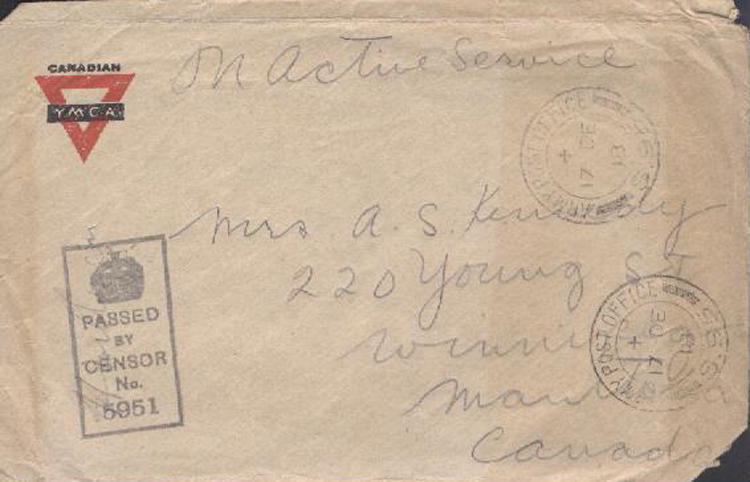 On Active Service
CANADIAN
YMCA
ARMY POST OFFICE
17 DE
18
Mrs A. S. Kennedy
220 Young St
Winnipeg
Manitoba
Canada
PASSED
BY
CENSOR
No.
5951
Y POST OFFICE
17 DE
18